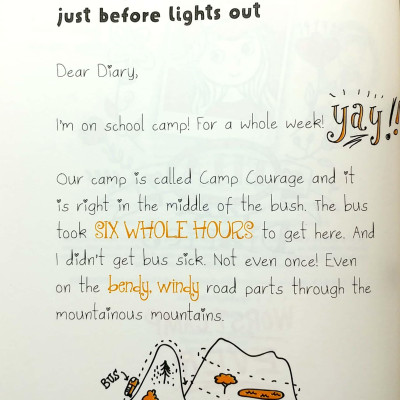 just before lights out
Dear Diary,
I'm on school camp! For a whole week! yay!!
Our camp is called Camp Courage and it
is right in the middle of the bush. The bus
took SIX WHOLE HOURS to get here. And
I didn't get bus sick. Not even once! Even
on the bendy, windy road parts through the
mountainous mountains.
BUS